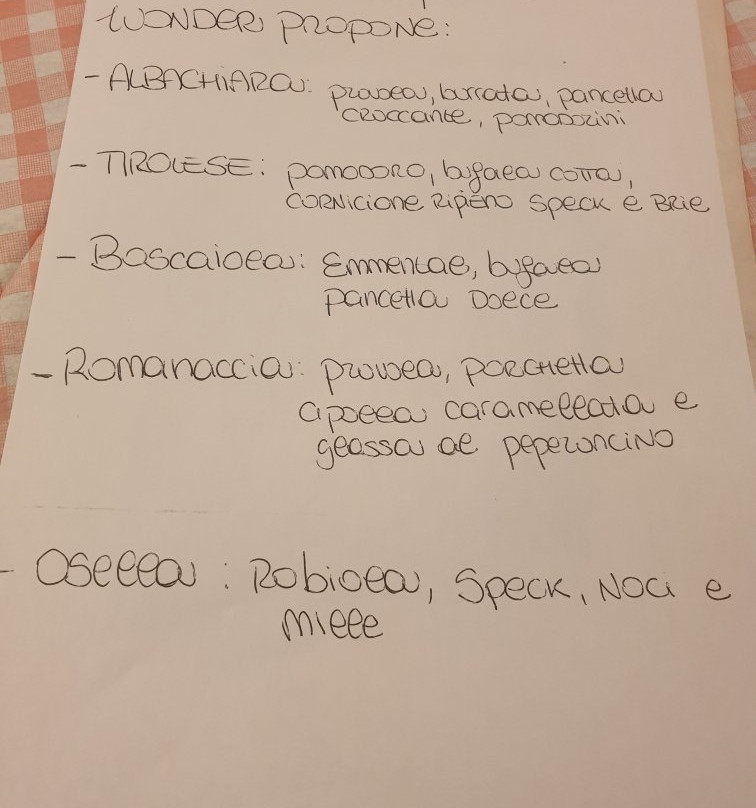 WONDER PROPONE:
- ALBACHIARA: provola, burrata, pancetta
croccante, pomodorini
- TIROLESE: pomodoro, bufala cotta,
CORNICIONE Ripieno Speck e BRIE
- Boscaiola: Emmental, bufala
pancetta Dolce
- Romanaccia: provola, PORCHETTA
cipolla caramellata e
glassa al peperoncino
- Osella: Robiola, Speck, Noci e
Miele